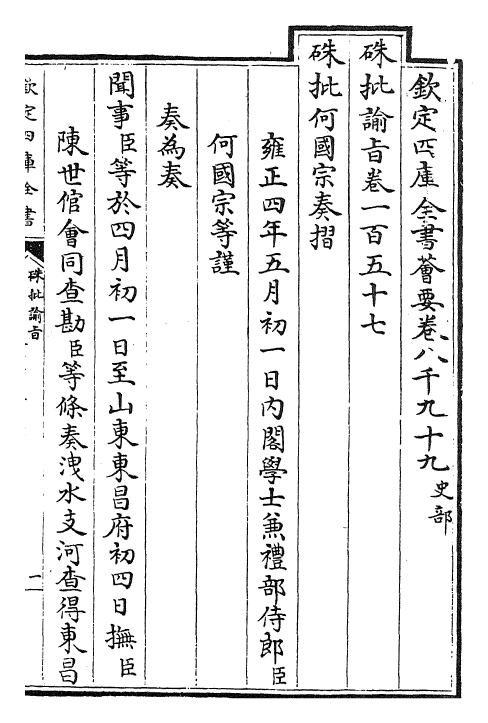 欽定四庫全書薈要卷八千九十九 史部
硃批諭旨卷一百五十七
硃批何國宗奏摺
雍正四年五月初一日內閣學士兼禮部侍郎臣
何國宗等謹
奏為奏
聞事臣等於四月初一日至山東東昌府初四日撫臣
陳世倌會同查勘臣等條奏洩水支河查得東昌
欽定四庫全書
硃批諭旨